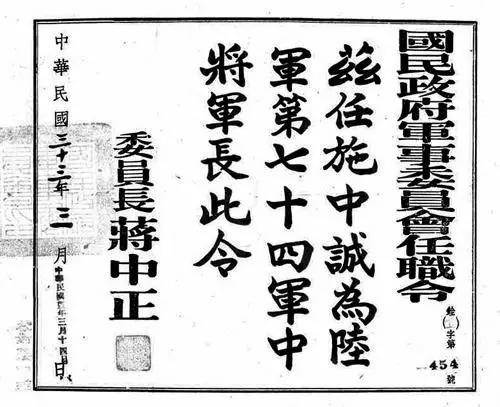 國民政府軍事委員會任職令
字第
454
號
茲任施中誠為陸
軍第七十四軍中
將軍長此令
委員長蔣中正
中華民國三十三年三月
中華民國
年三月十四日
日